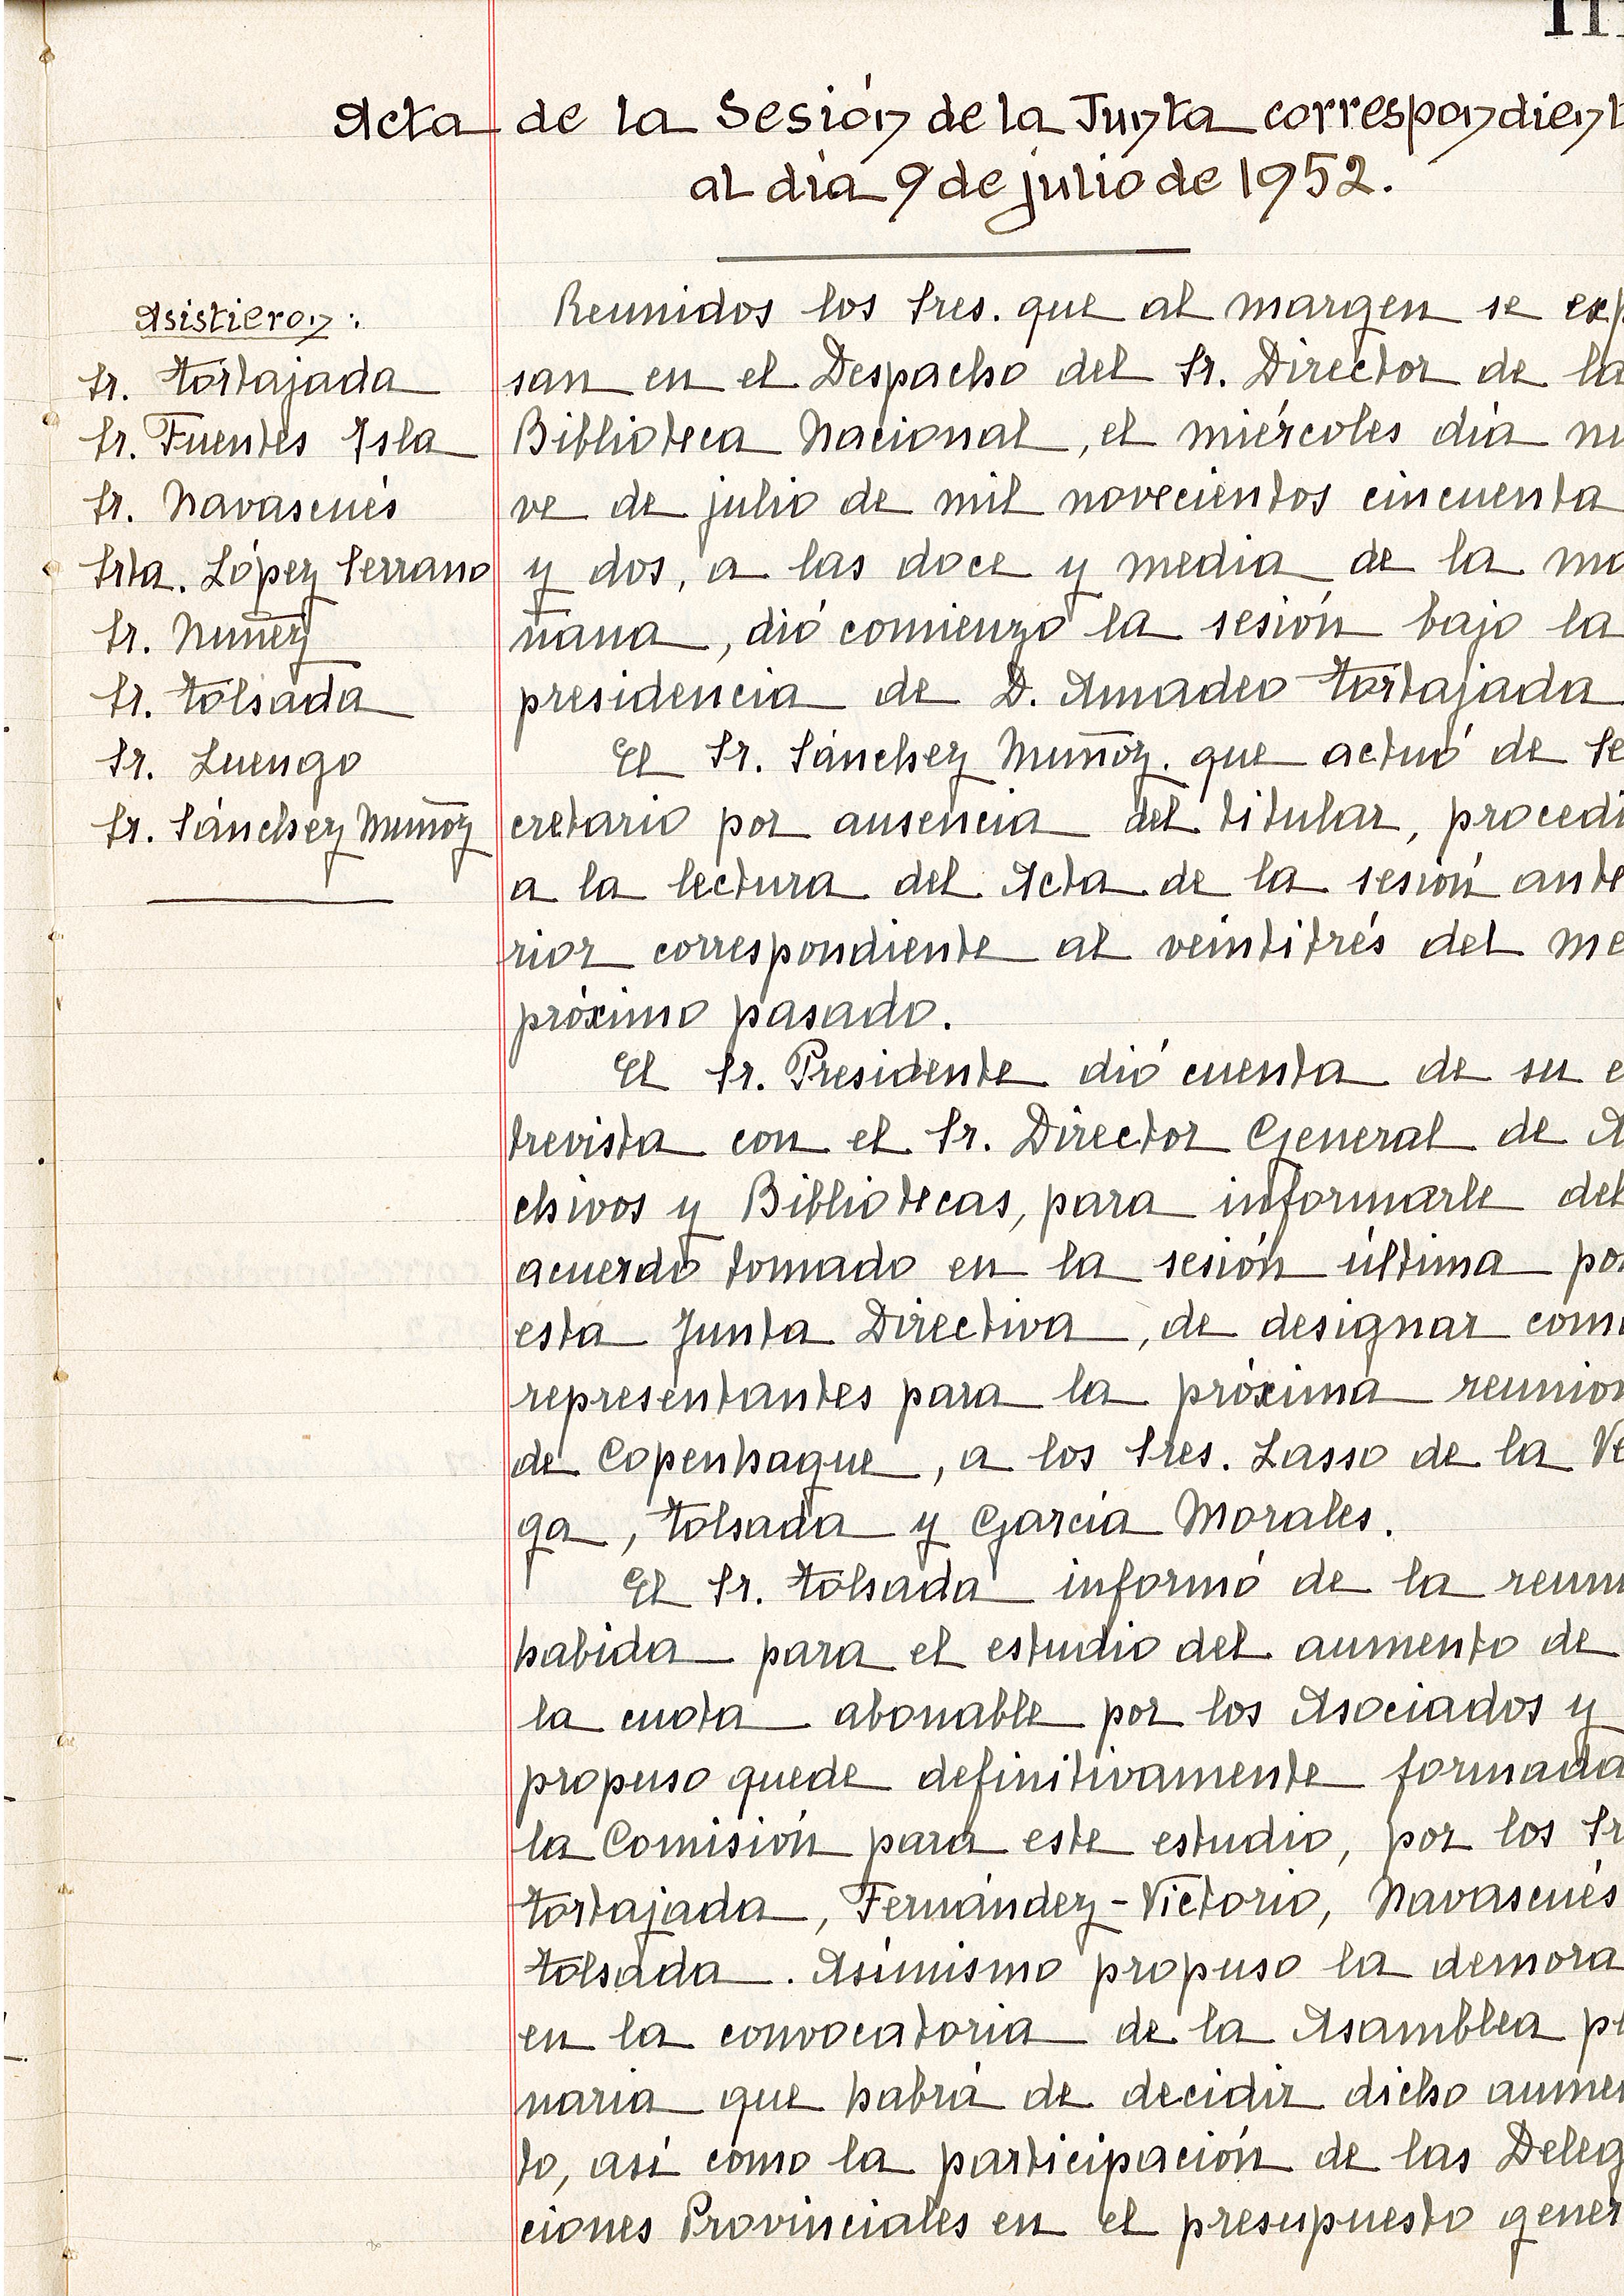 Acta de la Sesión de la Junta correspondient
al día 9 de julio de 1952.
Asistieron:
Sr. Tortajada
Sr. Fuentes Isla
Sr. Navascués
Srta. López Serrano
Sr. Nuñez
Sr. Tolsada
Sr. Luengo
Sr. Sánchez Muñoz
Reunidos los Sres. que al margen se exp
san en el Despacho del Sr. Director de la
Biblioteca Nacional, el miércoles día nu
ve de julio de mil novecientos cincuenta
y dos, a las doce y media de la ma
ñana, dió comienzo la sesión bajo la
presidencia de D. Amadeo Tortajada
El Sr. Sánchez Muñoz. que actuó de Se
cretario por ausencia del titular, procedi
a la lectura del Acta de la sesión ante
rior correspondiente al veintitrés del me
próximo pasado.
El Sr. Presidente dió cuenta de su e
trevista con el Sr. Director General de A
chivos y Bibliotecas, para informarle del
acuerdo tomado en la sesión última por
esta Junta Directiva, de designar como
representantes para la próxima reunion
de Copenhague, a los Sres. Lasso de la Ve
ga, Tolsada y García Morales.
El Sr. Tolsada informó de la reuni
habida para el estudio del aumento de
la cuota abonable por los Asociados y
propuso quede definitivamente formada
la Comisión para este estudio, por los Sr
Tortajada, Fernández-Victorio, Navascués
Tolsada. Asimismo propuso la demora
en la convocatoria de la Asamblea pl
naria que habrá de decidir dicho aumen
to, así como la participación de las Deleg
ciones Provinciales en el presupuesto gener